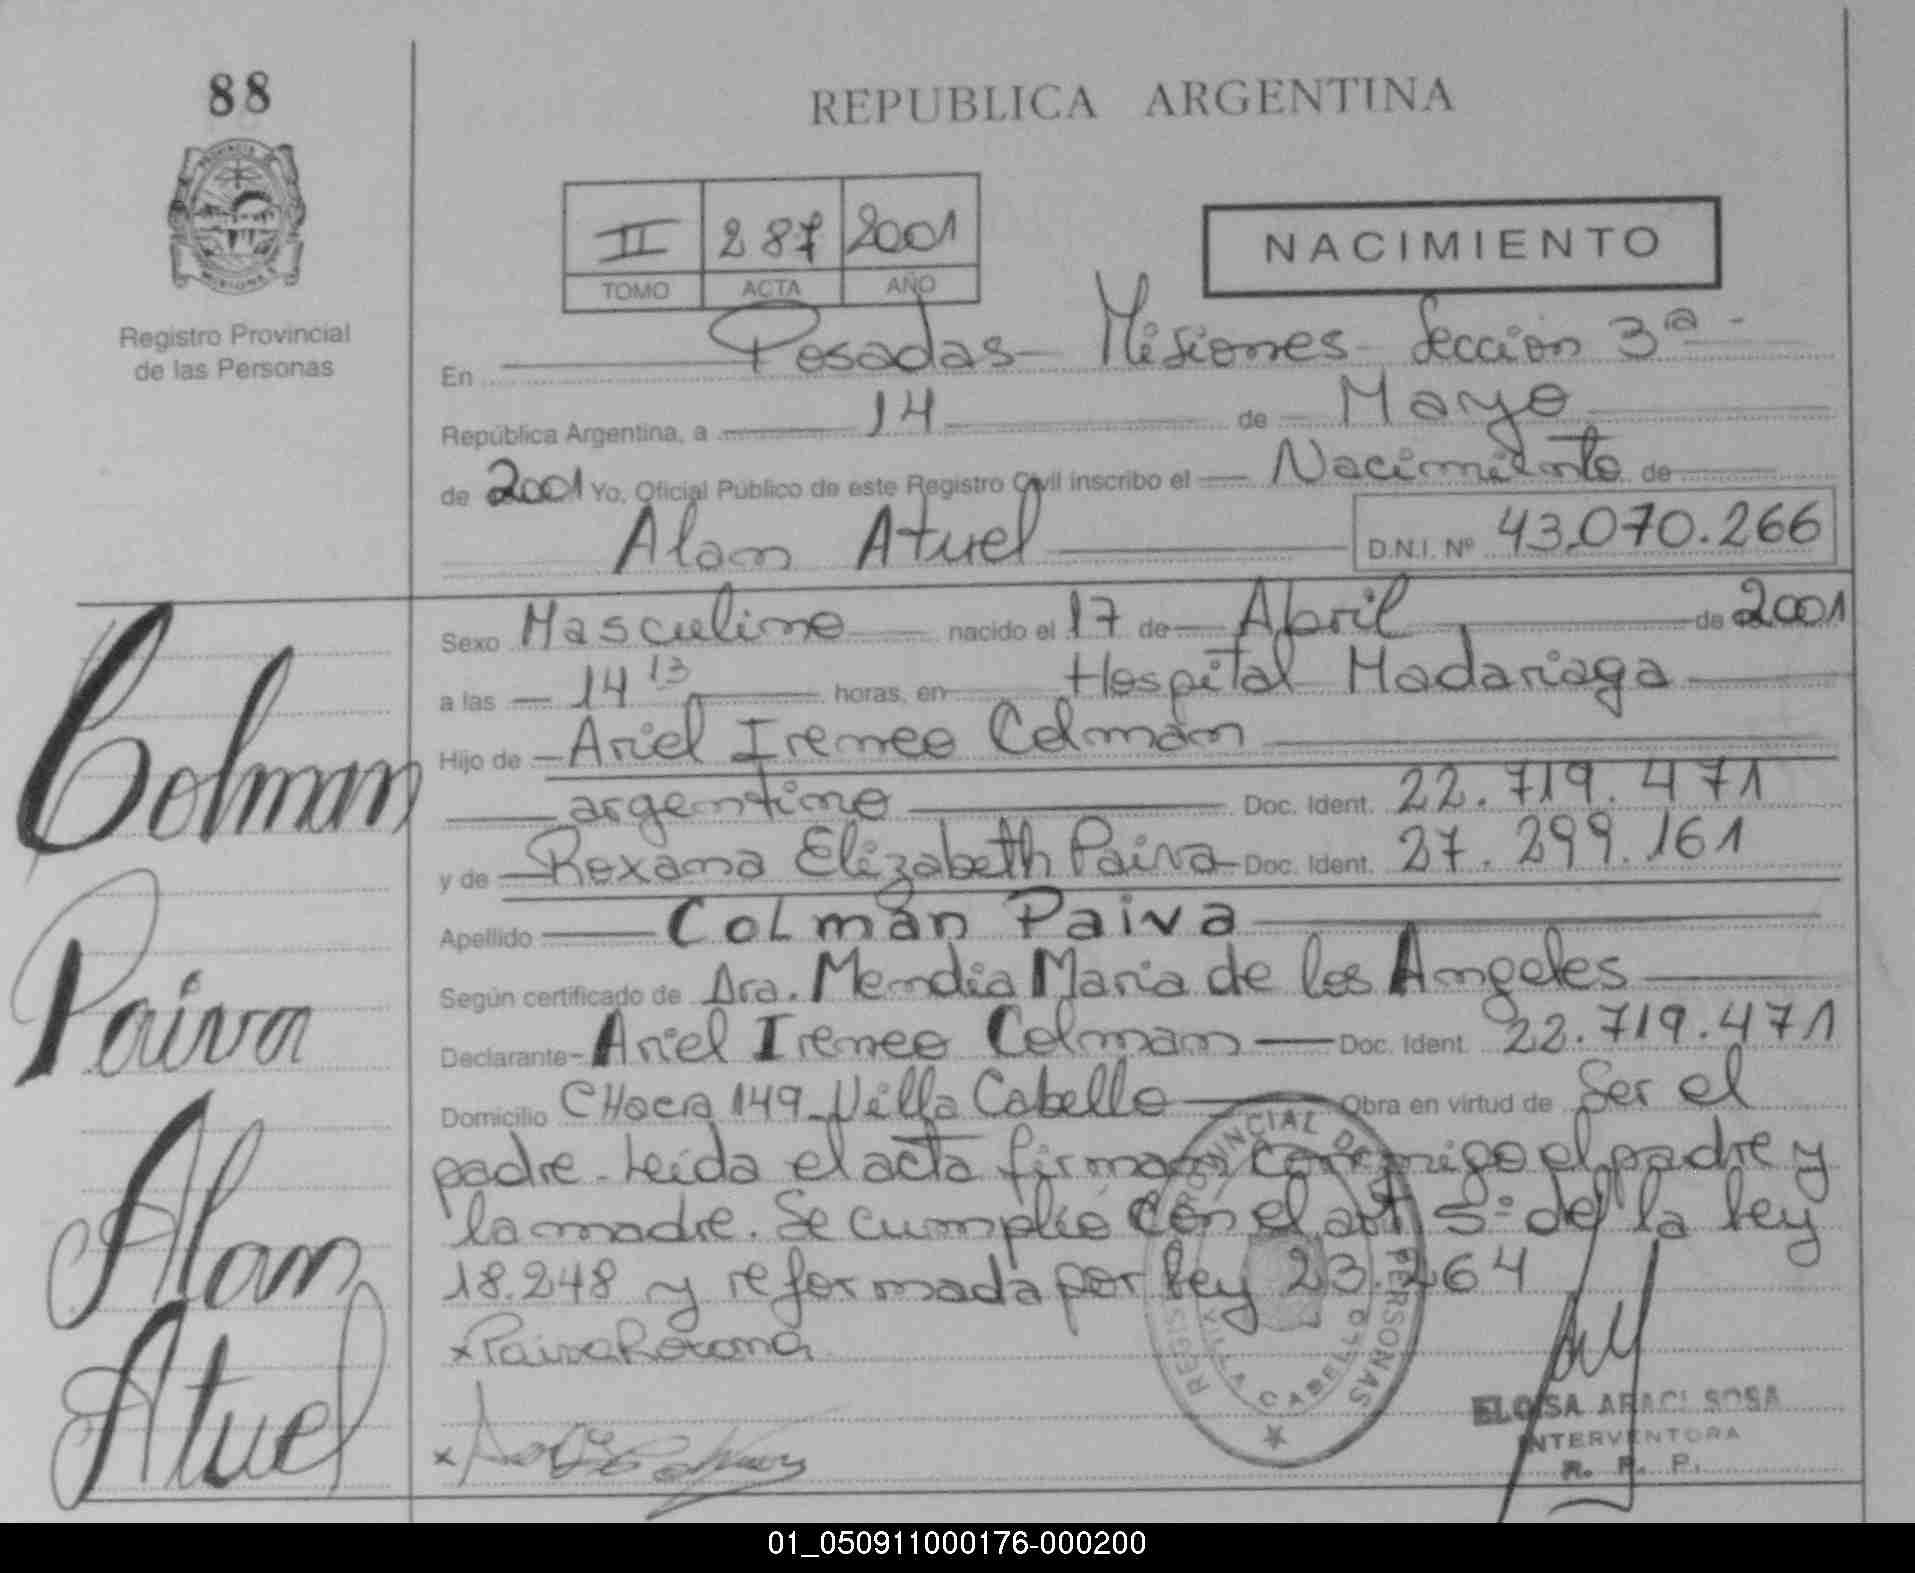 88
REPUBLICA ARGENTINA
II 287 2001
TOMO ACTA AÑO
NACIMIENTO
Registro Provincial
de las Personas
En Posadas - Misiones - Sección 3ª -
República Argentina, a 14 de Mayo
de 2001 Yo, Oficial Público de este Registro Civil inscribo el Nacimiento de
Alan Atuel D.N.I. Nº 43.070.266
Sexo Masculino nacido el 17 de Abril de 2001
a las 14 13 horas, en Hospital Madariaga
Hijo de Ariel Ireneo Colmán
argentino Doc. Ident. 22.719.471
y de Roxana Elizabeth Paiva Doc. Ident. 27.299.161
Apellido COLmán Paiva
Según certificado de Dra. Mendia Maria de los Angeles
Declarante Ariel Ireneo Colman Doc. Ident. 22.719.471
Domicilio CHacra 149 - Villa Cabello Obra en virtud de Ser el
padre. Leida el acta firman conmigo el padre y
la madre. Se cumplió con el art 5º del la ley
18.248 y reformada por ley 23.264
x Paiva Roxana
x
Colman
Paiva
Alan
Atuel
REGISTRO PROVINCIAL DE PERSONAS
VILLA CABELLO
ELOISA ARACI SOSA
INTERVENTORA
R. P. P.
01_050911000176-000200